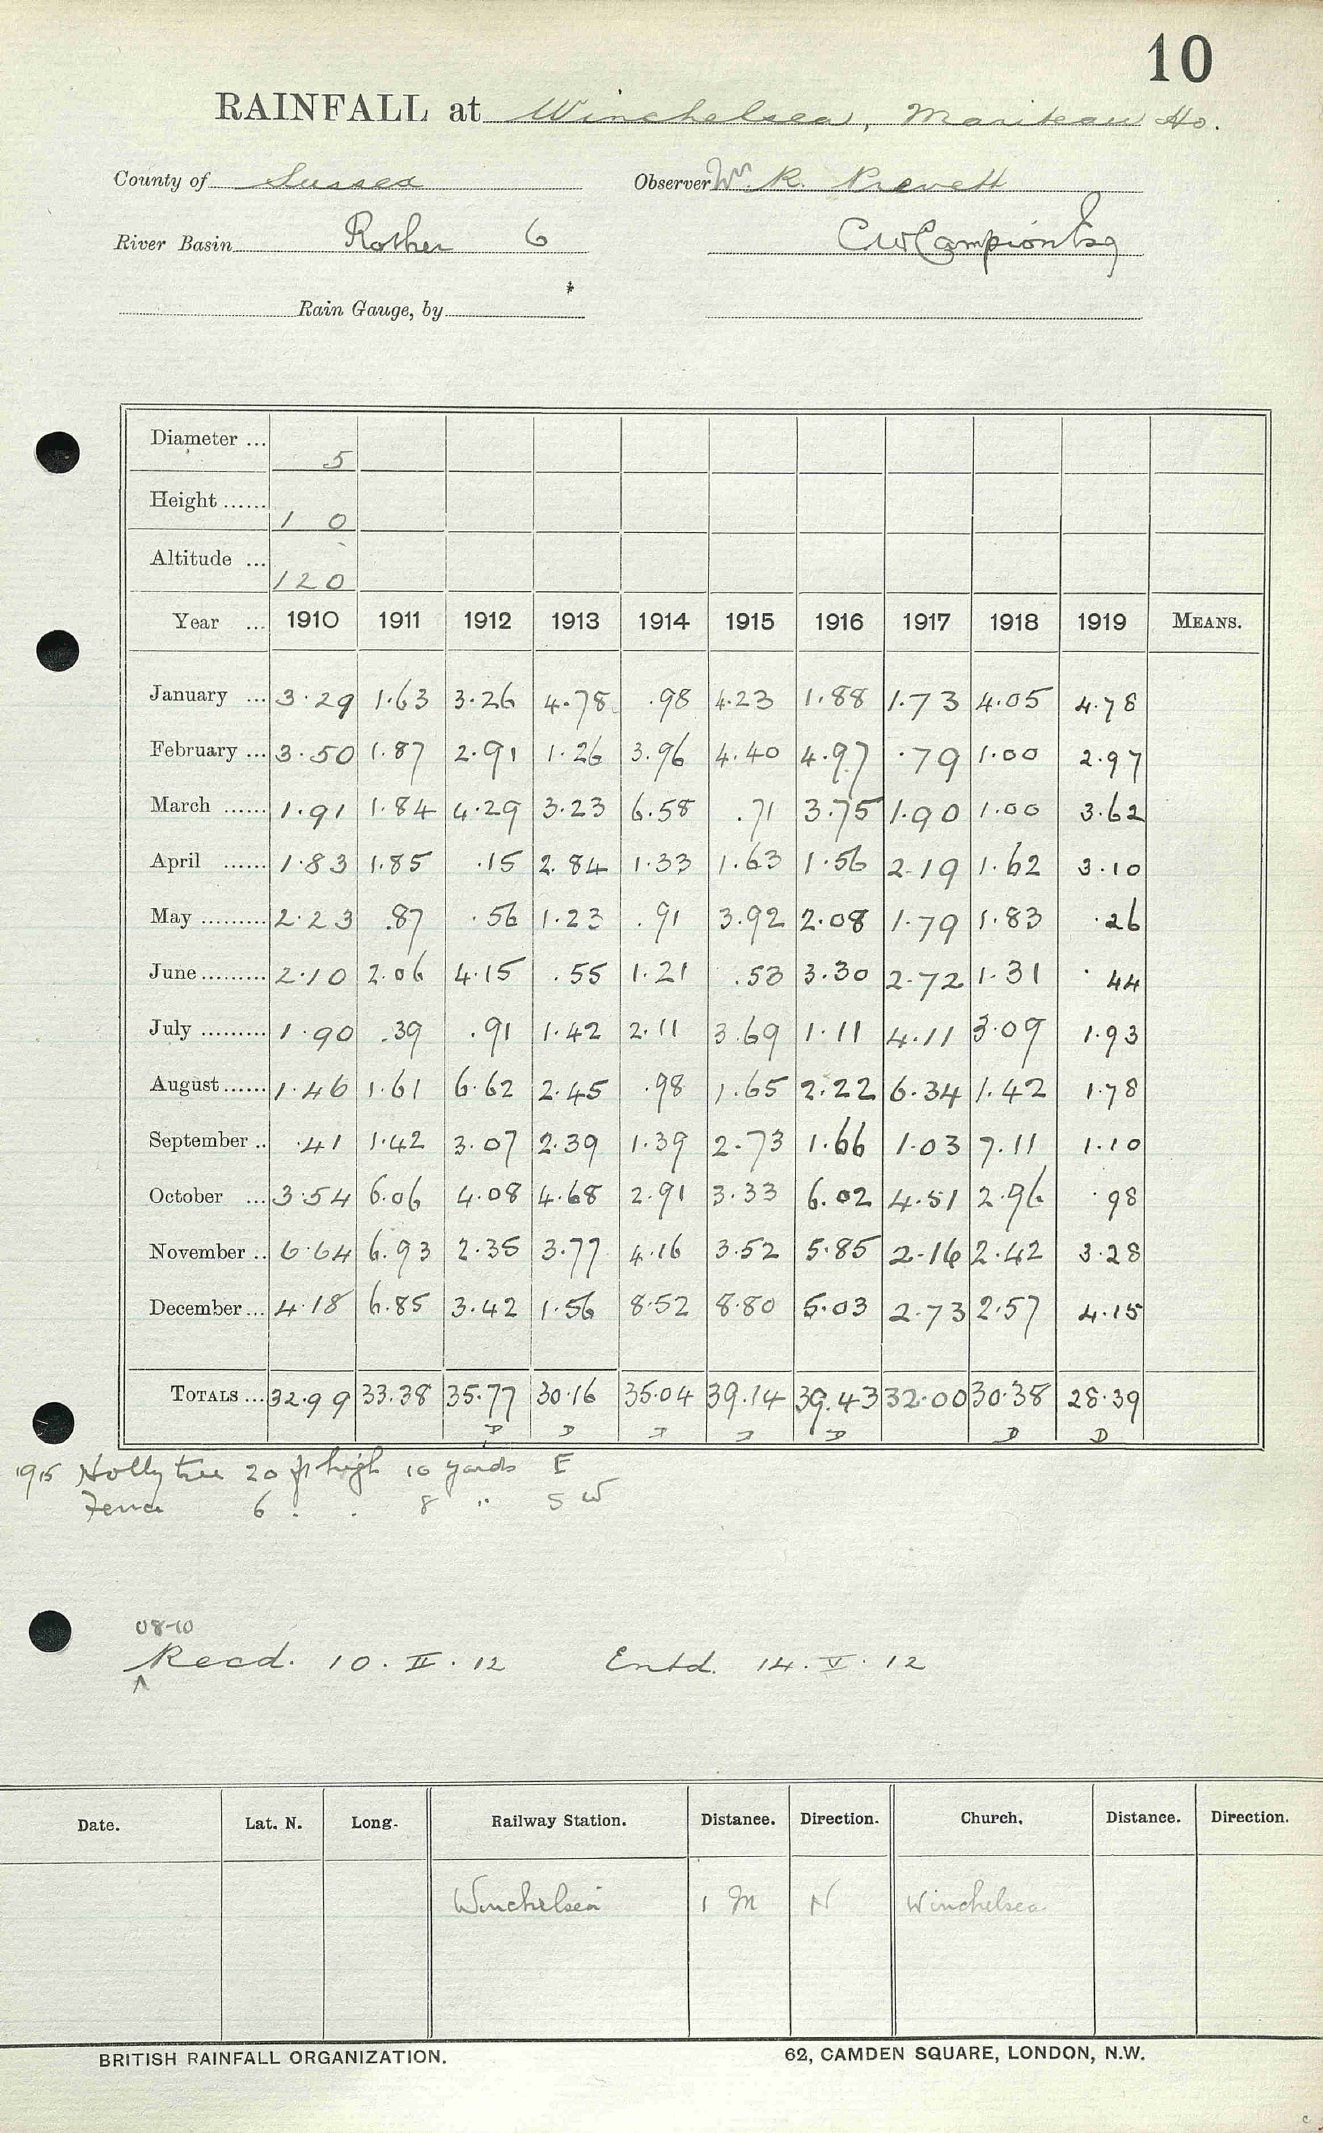 10
RAINFALL at Winchelsea, Mariteau Ho.
County of Sussex Observer Wm. R. Prevett
River Basin Rother 6 C W Campion Esq
Rain Gauge, by
Diameter ... 5
Height ...... 1 0
Altitude ... 120
Year ... 1910 1911 1912 1913 1914 1915 1916 1917 1918 1919 MEANS.
January ... 3.29 1.63 3.26 4.78 .98 4.23 1.88 1.73 4.05 4.78
February ... 3.50 1.87 2.91 1.26 3.96 4.40 4.97 .79 1.00 2.97
March ...... 1.91 1.84 4.29 3.23 6.58 .71 3.75 1.90 1.00 3.62
April ...... 1.83 1.85 .15 2.84 1.33 1.63 1.56 2.19 1.62 3.10
May ......... 2.23 .87 .56 1.23 .91 3.92 2.08 1.79 1.83 .26
June ......... 2.10 2.06 4.15 .55 1.21 .53 3.30 2.72 1.31 .44
July ......... 1.90 .39 .91 1.42 2.11 3.69 1.11 4.11 3.09 1.93
August ...... 1.46 1.61 6.62 2.45 .98 1.65 2.22 6.34 1.42 1.78
September .. .41 1.42 3.07 2.39 1.39 2.73 1.66 1.03 7.11 1.10
October ... 3.54 6.06 4.08 4.68 2.91 3.33 6.02 4.51 2.96 .98
November .. 6.64 6.93 2.35 3.77 4.16 3.52 5.85 2.16 2.42 3.28
December ... 4.18 6.85 3.42 1.56 8.52 8.80 5.03 2.73 2.57 4.15
TOTALS ... 32.99 33.38 35.77 30.16 35.04 39.14 39.43 32.00 30.38 28.39
D D D D D D D
1915 Holly tree 20 ft high 10 yards E
Fence 6 . . 8 " SW
08-10
Recd. 10. II. 12 Entd. 14. V. 12
Date. Lat. N. Long. Railway Station. Distance. Direction. Church. Distance. Direction.
Winchelsea 1 M N Winchelsea
BRITISH RAINFALL ORGANIZATION. 62, CAMDEN SQUARE, LONDON, N.W.